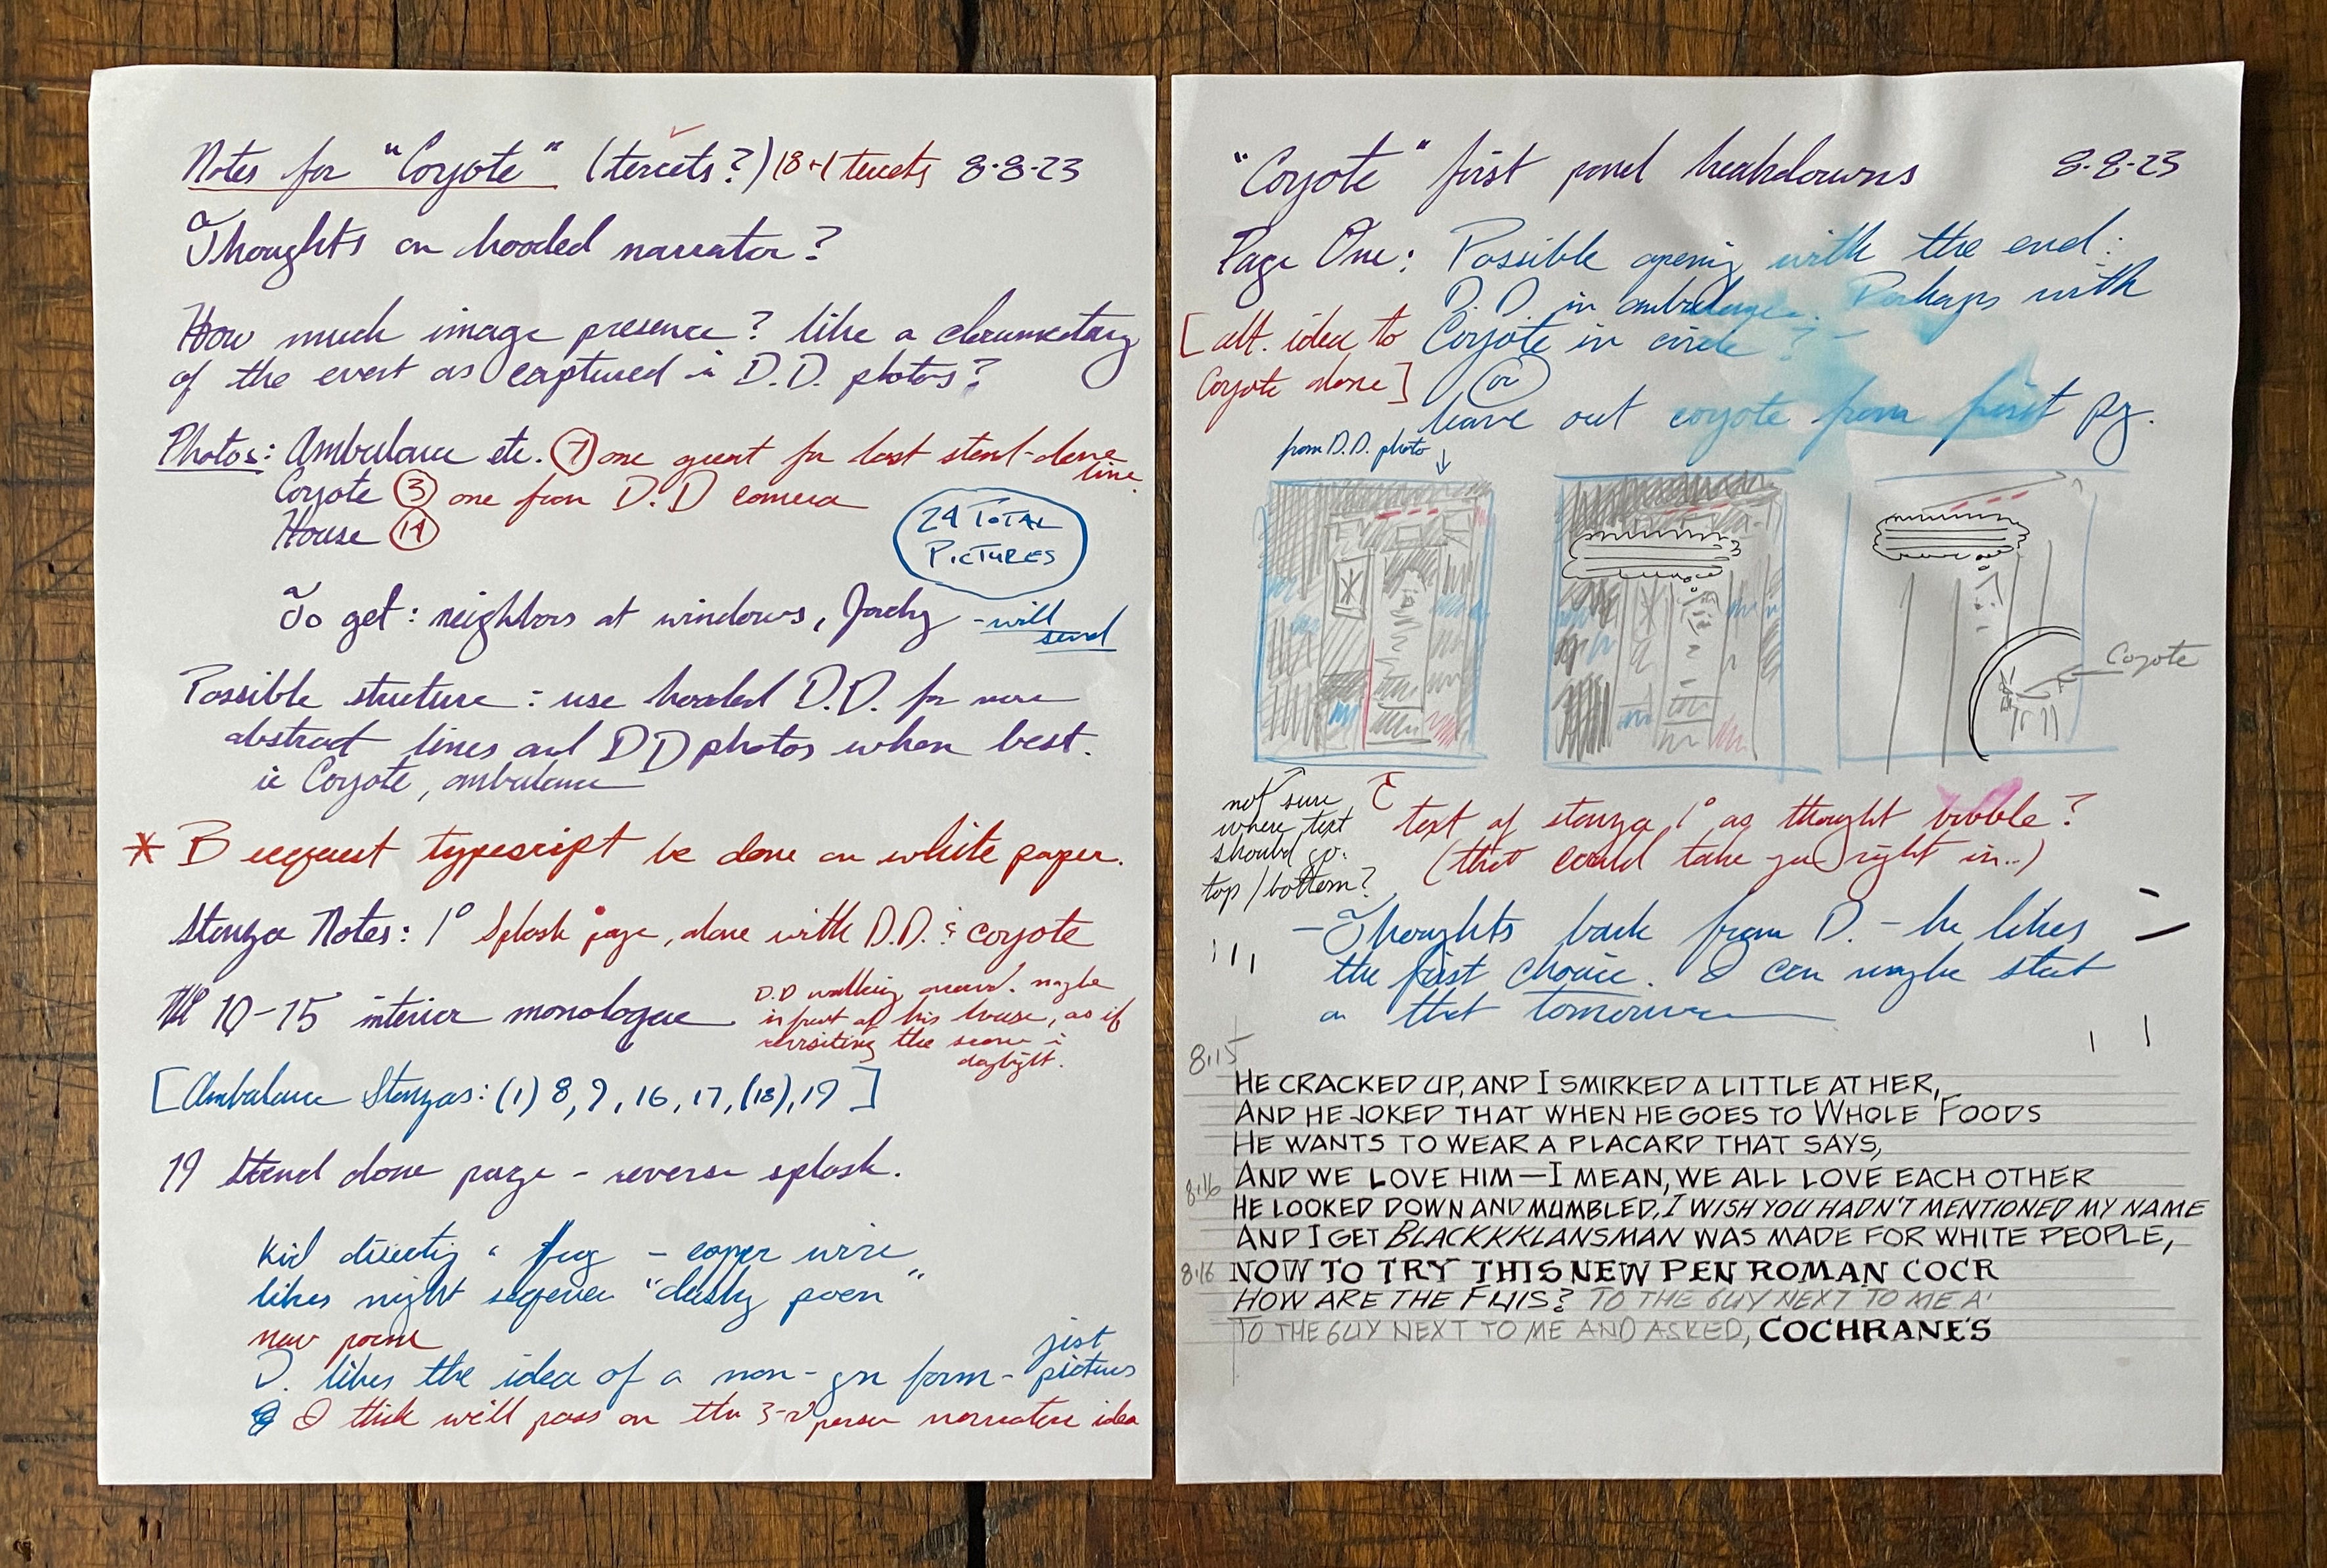 Notes for "Coyote" (tercets?) 18+1 tercets 8-8-23
Thoughts on hooded narrator?
How much image presence? like a documentary
of the event as captured in D.D. photos?
Photos: Ambulance etc. 7 one great for last stand-alone line.
Coyote 3 one from D.D camera
House 14
24 TOTAL
PICTURES
To get: neighbors at windows, Jordy - will send
Possible structure: use hooded D.D. for more
abstract lines and DD photos when best.
ie Coyote, ambulance
* B request typescript be done on white paper.
Stanza Notes: 1° Splash page, alone with D.D. & coyote
10-15 interior monologue
D.D walking around. maybe
in front of his house, as if
revisiting the scene in
daylight.
[Ambulance Stanzas: (1) 8, 9, 16, 17, (18), 19]
19 Stand alone page - reverse splash.
Kid directing - copper wire
likes night sequence "dusky poem"
new poem
D. likes the idea of a non-gn form - just pictures
I think we'll pass on the 3-rd person narrative idea
"Coyote" first panel breakdowns 8-8-23
Page One: Possible opening with the end:
D.D. in ambulance. Perhaps with
[alt. idea to Coyote in circle?
Coyote alone] or
leave out coyote from first pg.
from D.D. photo
Coyote
not sure
where text
should go.
top/bottom?
text of stanza 1° as thought bubble?
(that could take you right in..)
- Thoughts back from D. - he likes
the first choice. I can maybe start
on that tomorrow
8:15
HE CRACKED UP, AND I SMIRKED A LITTLE AT HER,
AND HE JOKED THAT WHEN HE GOES TO WHOLE FOODS
HE WANTS TO WEAR A PLACARD THAT SAYS,
8:16 AND WE LOVE HIM—I MEAN, WE ALL LOVE EACH OTHER
HE LOOKED DOWN AND MUMBLED, I WISH YOU HADN'T MENTIONED MY NAME
AND I GET BLACKKKLANSMAN WAS MADE FOR WHITE PEOPLE,
8:16 NOW TO TRY THIS NEW PEN ROMAN COCR
HOW ARE THE FLIIS? TO THE GUY NEXT TO ME A
TO THE GUY NEXT TO ME AND ASKED, COCHRANE'S